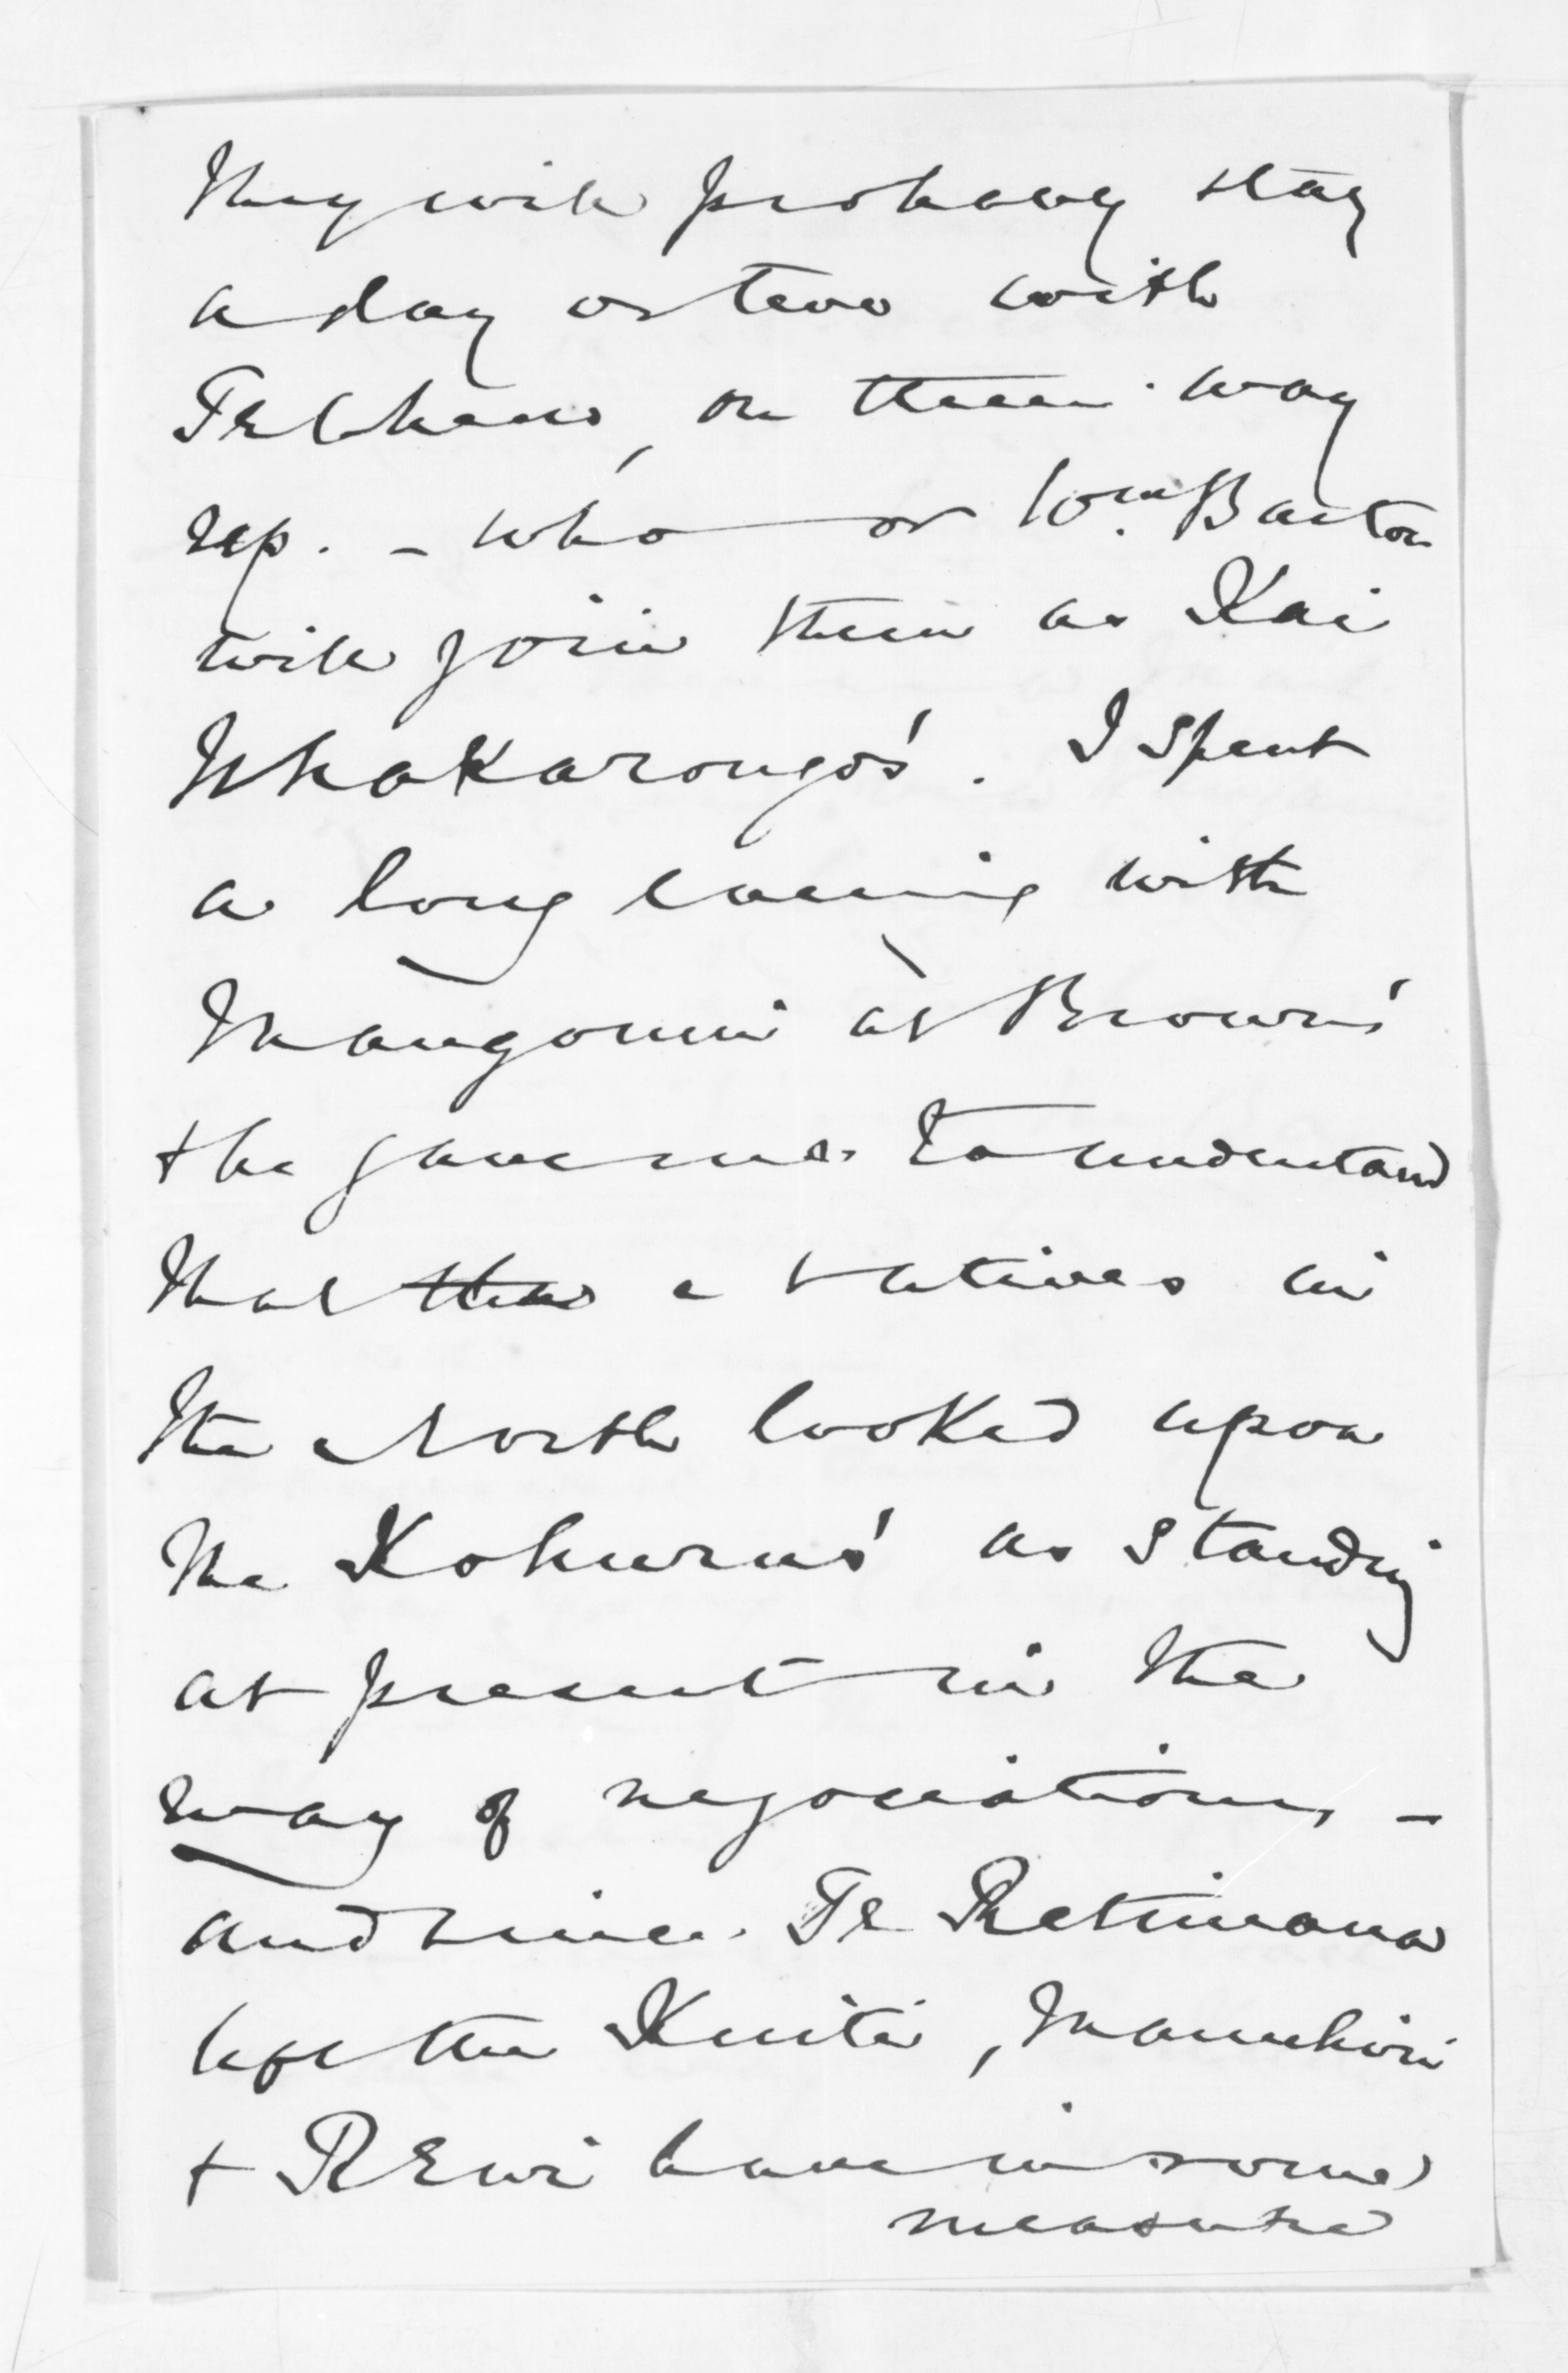 They will probably stay
a day or two with
Te Wheoro, on their way
up. - who or Wm. Barton
will join them as Kai
Whakarongo's. I spent
a long evening with
Mangonui at Brown's
& he gave me to understand
that the Natives in
the North looked upon
the Kohuru's as standing
at present in the
way of negociations, -
and since Te Retimana
left the Kuiti, Manuhiri
& Rewi have in some
measure